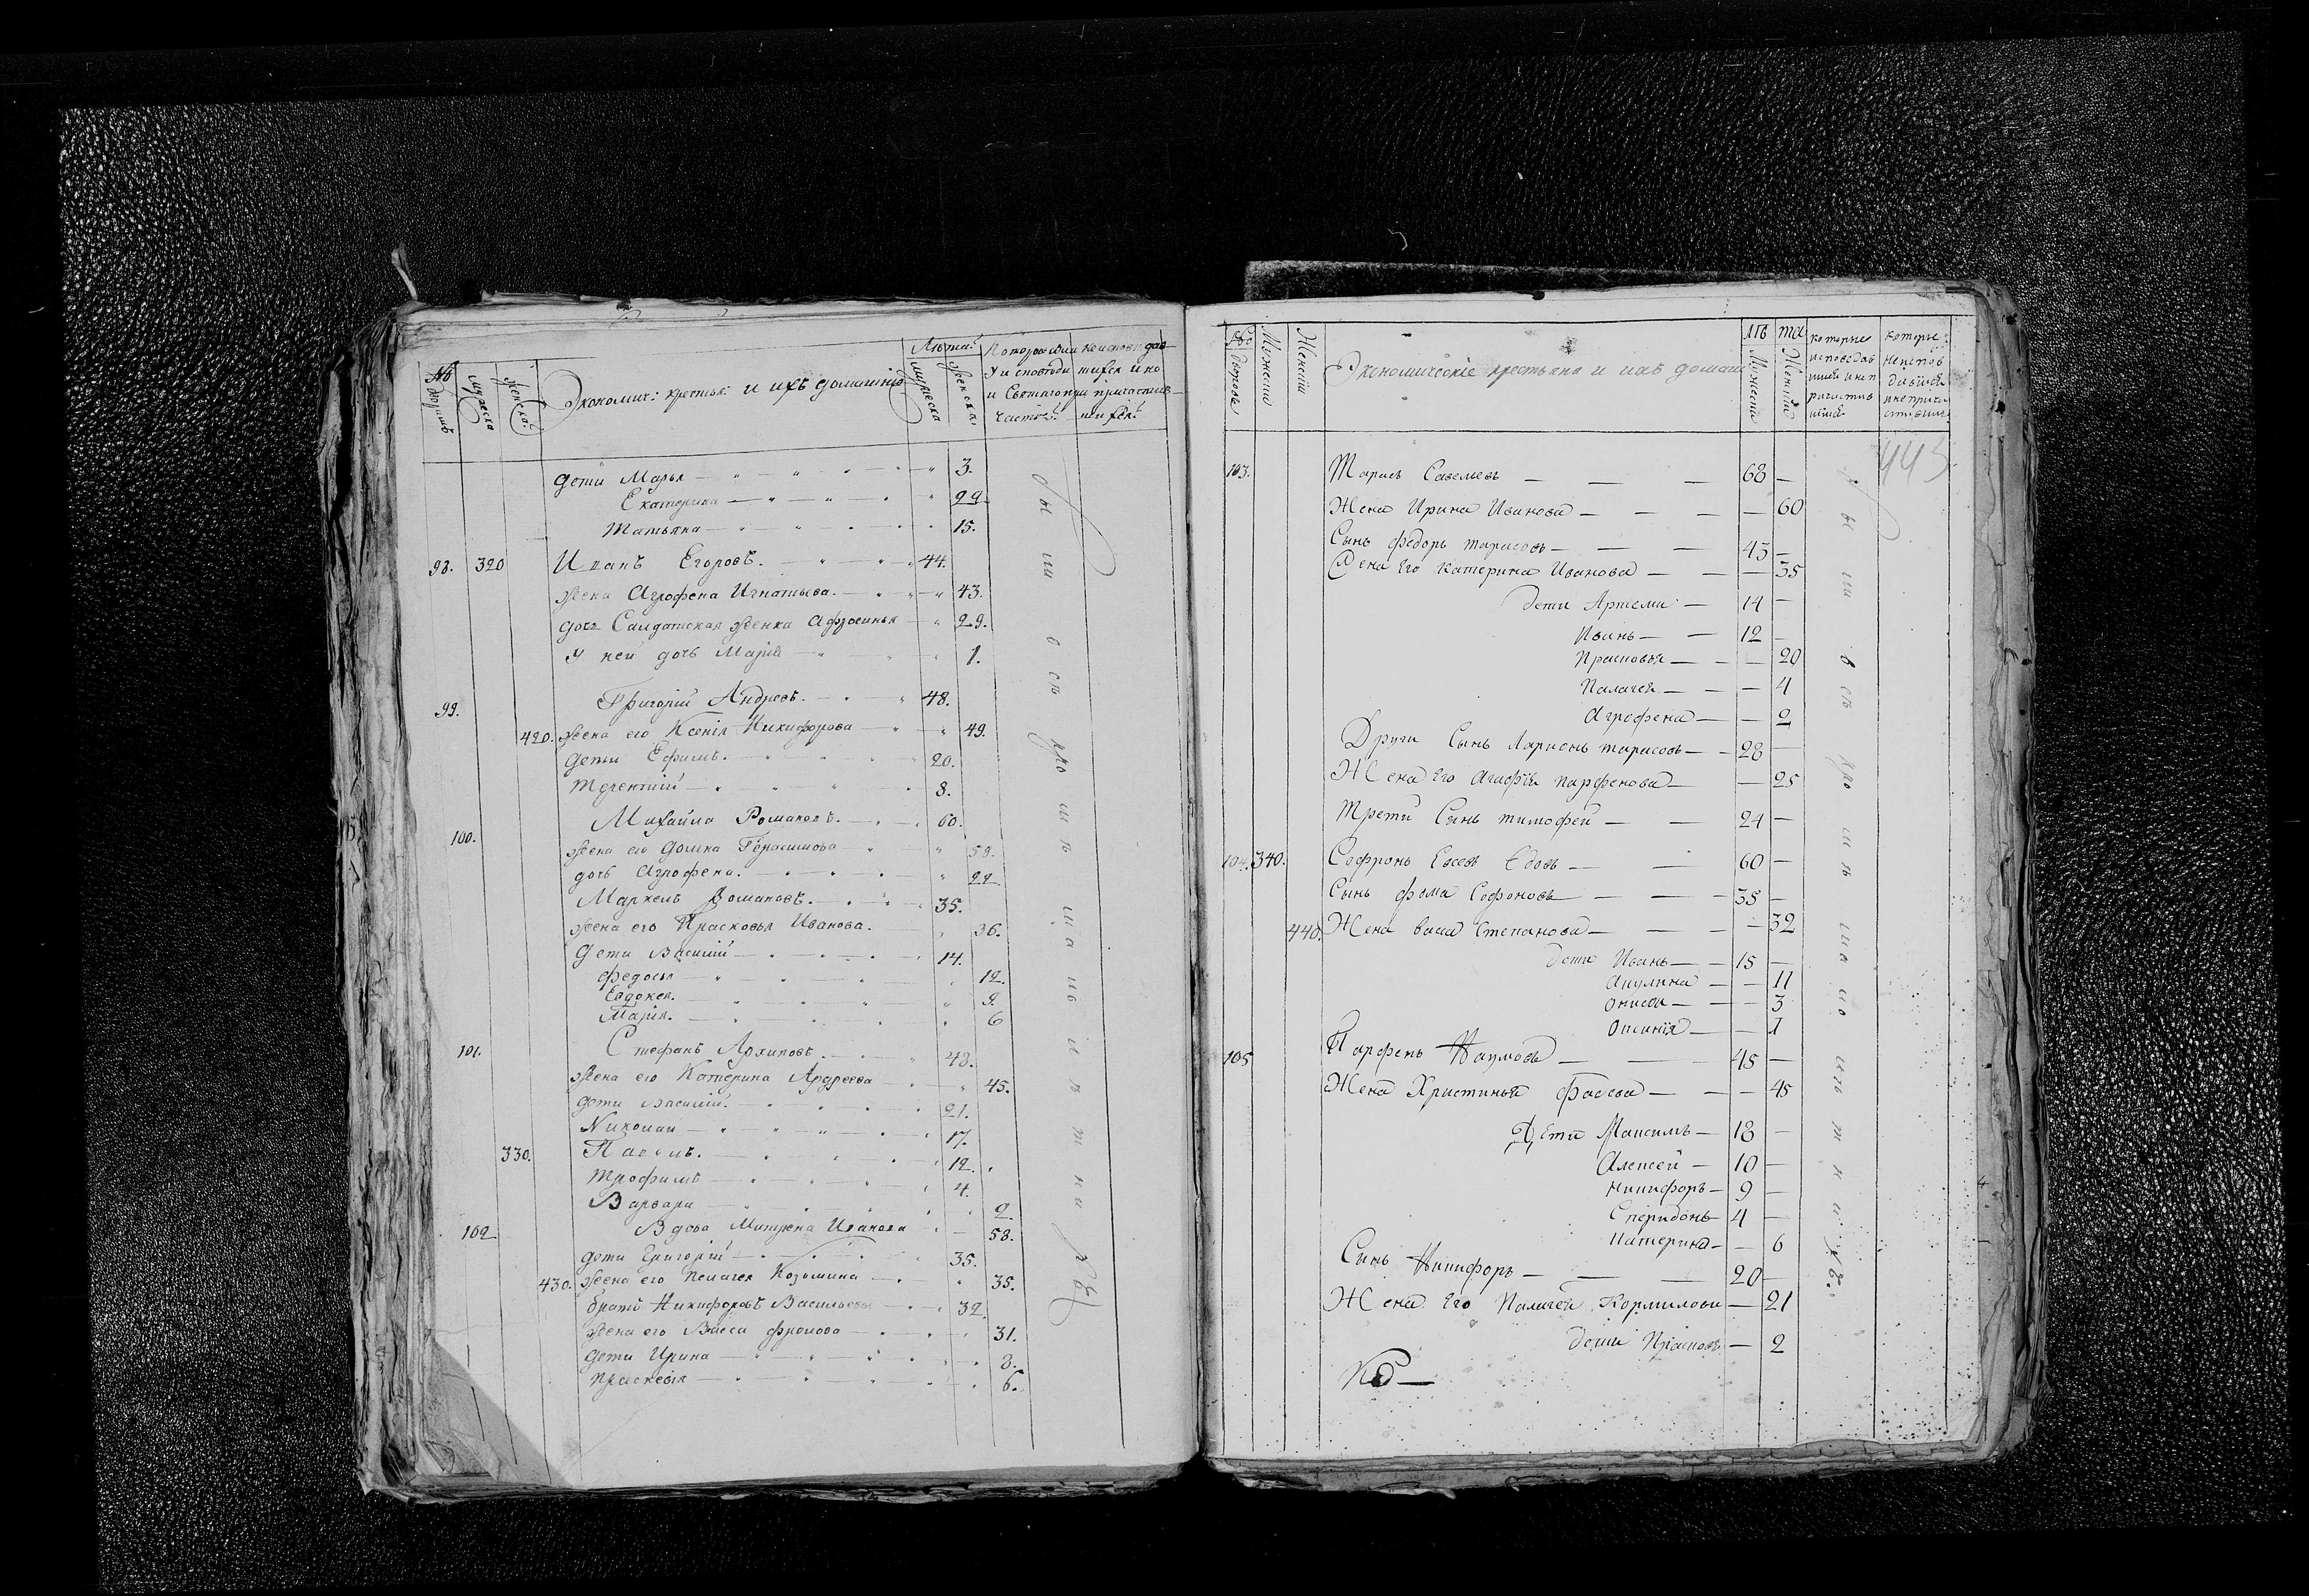 № дворовъ
мужеска
женска:
Экономич: крестьяне и ихъ домашнїе
Лѣта:
мужеска
женска:
дети Марья 3.
Екатерина 22.
Татьяна 15.
98. 320 Иванъ Егоровъ. 44.
жена Агрофена Игнатьева. 43.
дочь Салдатская женка Афросинья 29.
у ней дочь Марїя 1.
99. Григорїй Андревъ. 48.
420. жена его Ксенїя Никифорова 49.
дети Ефимъ. 20.
Терентїй 8.
100. Михайла Романовъ. 60.
жена его Домна Герасимова 58.
дочь Агрофена. 22
Маркелъ Романовъ. 35.
жена его Прасковья Иванова. 36.
дети Василїй 14.
Федосья 12.
Евдокея. 9.
Марїя. 6
101. Стефанъ Архиповъ. 48.
жена его Катерина Андреева 45.
дети Василїй. 21.
Николаи 17.
330. Павелъ. 12.
Трофимъ 4.
Варвара 2
102 Вдова Матрена Иванова 58.
дети Григорїй 35.
430. жена его Пелагея Козьмина 35.
братъ Никифоръ Васильевъ 32.
жена его Васса Фролова 31.
дети Ирина 8.
Праскевїя 6.
№ дворовъ
Мужески
Женски
Экономическїе крестьяна и ихъ домаш
лѣ та
Мужески
Женски
которые
исповедав
шися и неп
ричастив
шися
которые
неиспов
давшися
и неприча
стившися
443
103. Тарасъ Савельевъ 68
Жена Ирина Иванова 60
Сынъ Федоръ тарасовъ 43
Жена Его катерина Иванова 35
дети Артеми 14
Иванъ 12
Прасковья 20
Палагея 4
Агрофена 2
Други Сынъ Ларионъ тарасовъ 28
Жена Его Агафїя парфенова 25
Трети Сынъ тимофеи 24
104. 340. Софронъ Евсевъ вдовъ 60
Сынъ фома Софоновъ 35
440. Жена васа Степанова 32
дети Иванъ 15
Акулина 11
Онисья 3
Оксинїя 1
105 Парфенъ Наумовъ 45
Жена Христинья Фадеева 45
Дети Максимъ 18
Алексеи 10
никифоръ 9
Сперидонъ 4
Катерина 6
Сынъ Никифоръ 20
Жена Его Палагея Кормилова 21
дети Прасковья 2